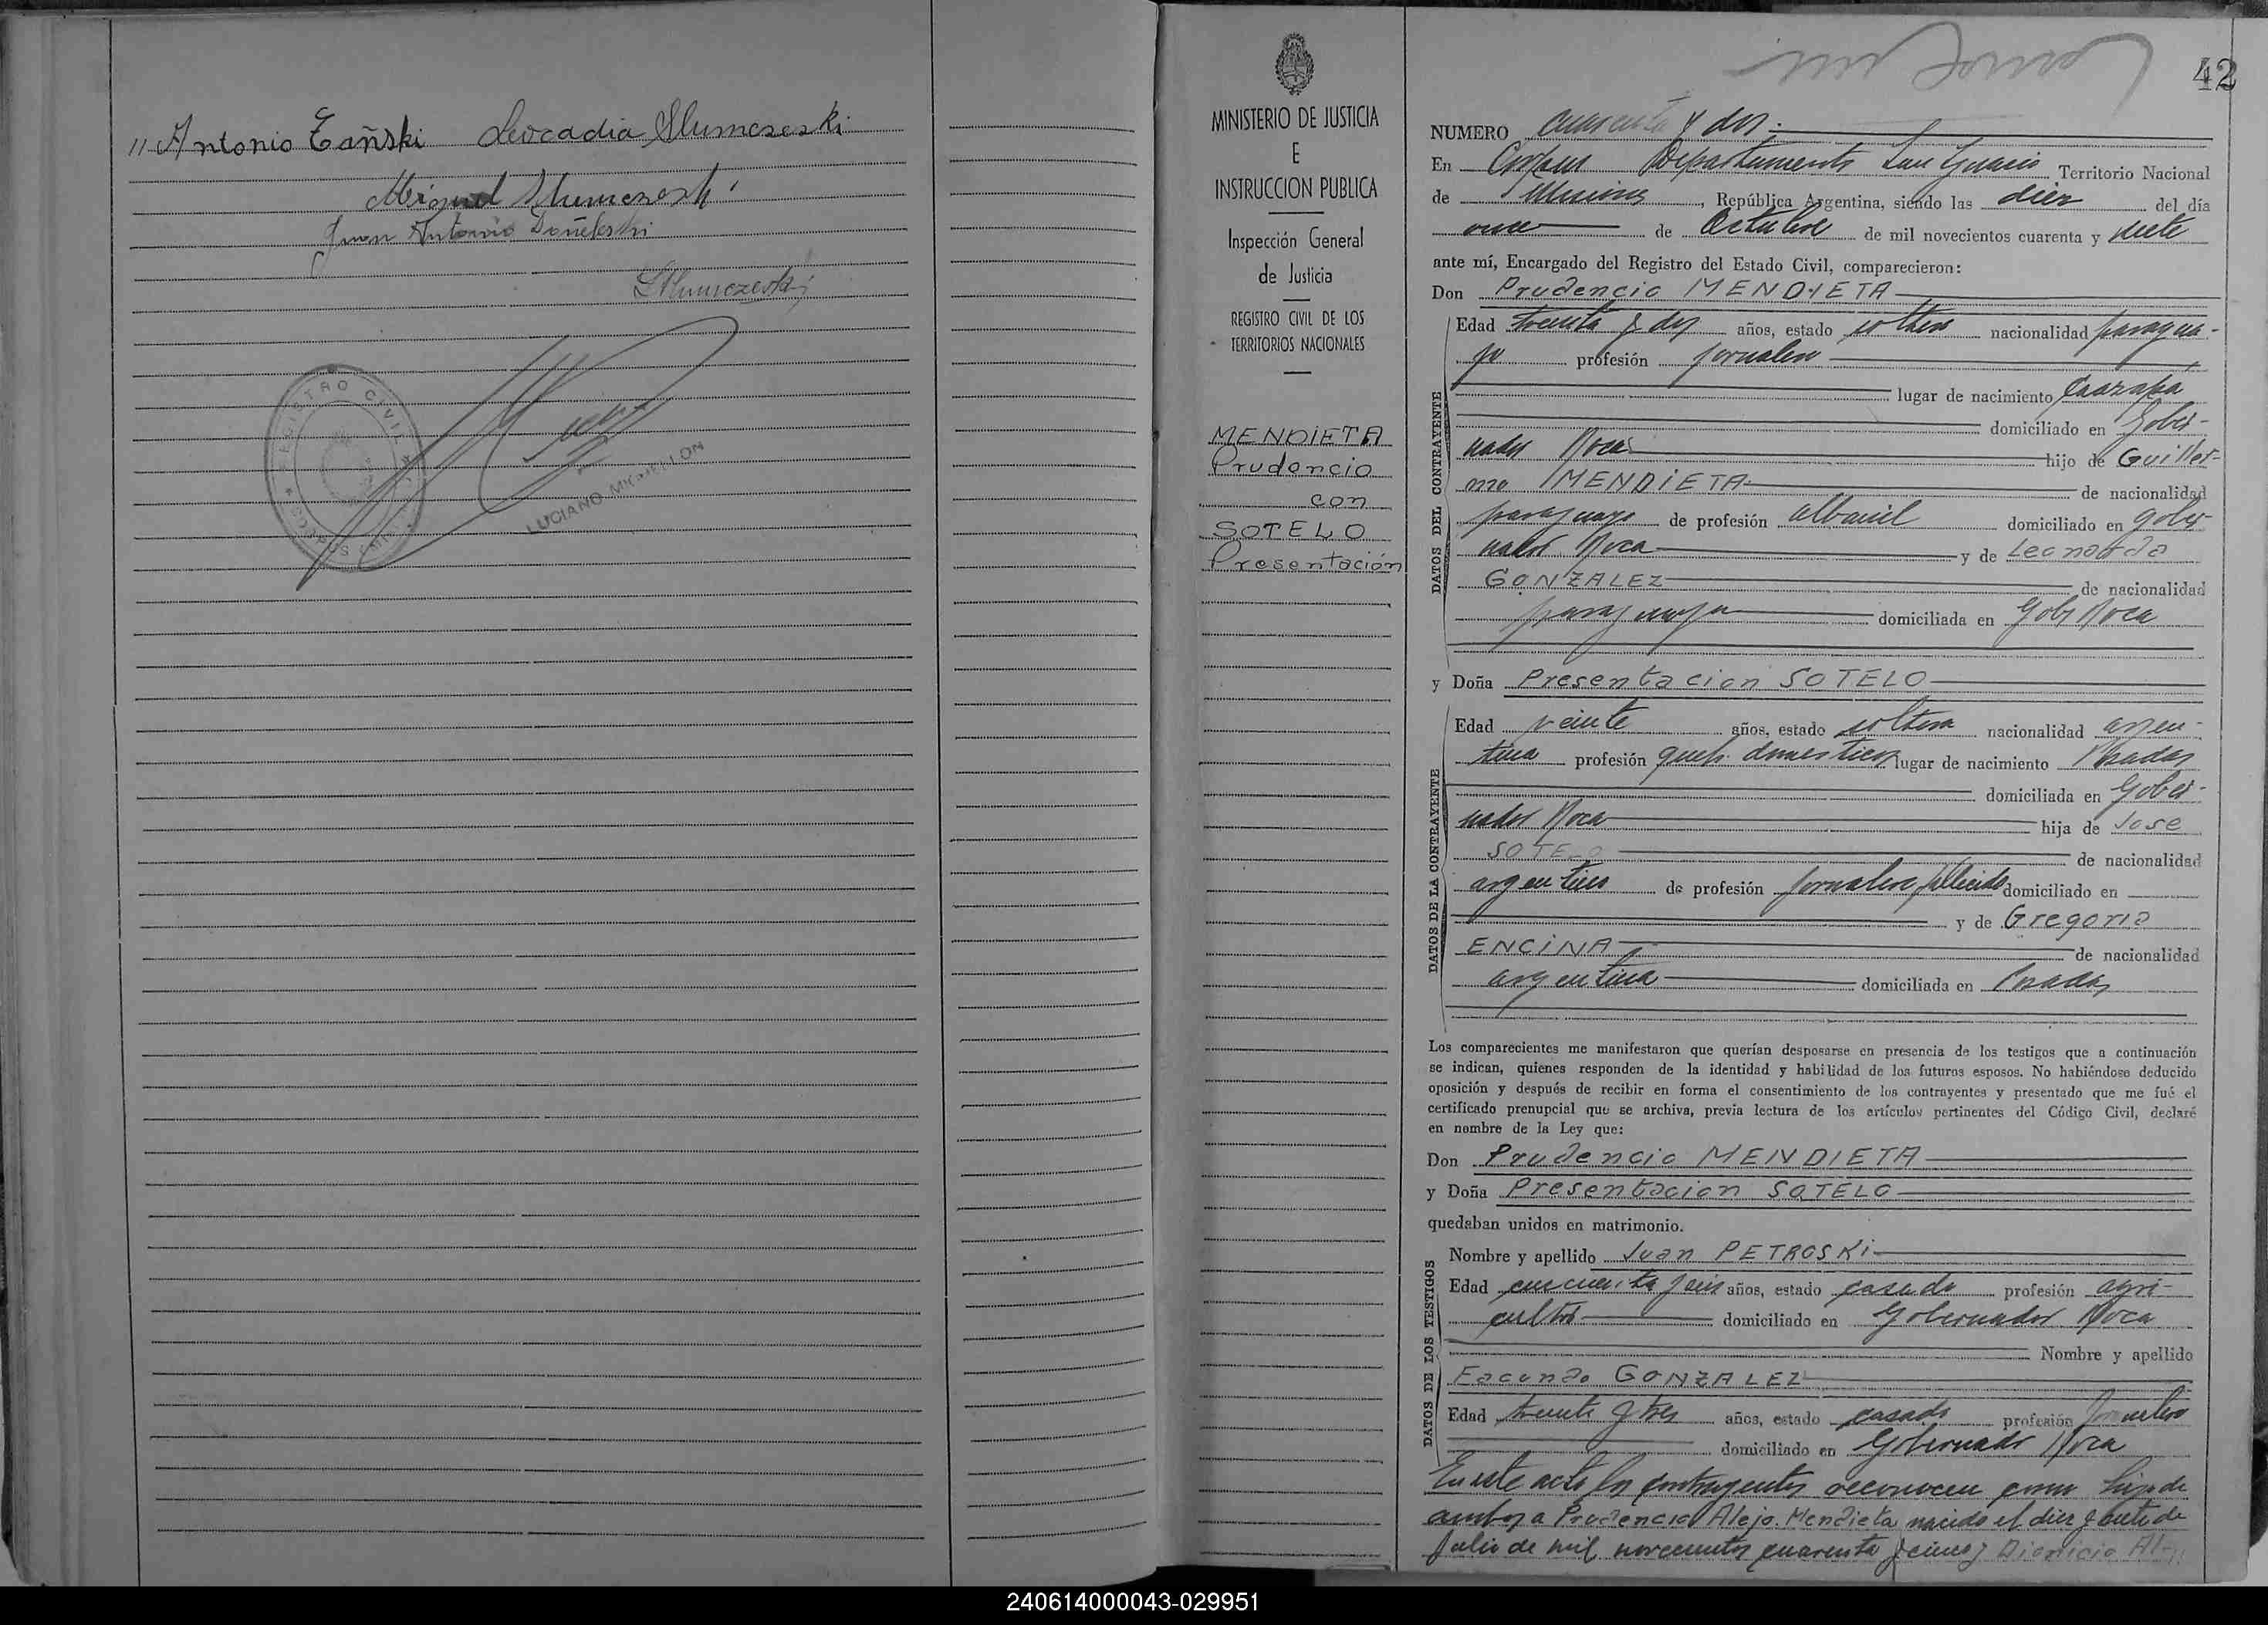 " Antonio Tañski Leocadia Slumczeski
Miguel Slumczeski
Juan Antonio
Slumczeski
REGISTRO CIVIL
LUCIANO MICHELLON
MINISTERIO DE JUSTICIA
E
INSTRUCCION PUBLICA
Inspección General
de Justicia
REGISTRO CIVIL DE LOS
TERRITORIOS NACIONALES
MENDIETA
Prudencio
con
SOTELO
Presentación
42
NUMERO cuarenta y dos.
En Corpus Departamento San Ignacio Territorio Nacional
de Misiones, República Argentina, siendo las diez del día
once de Octubre de mil novecientos cuarenta y siete
ante mí, Encargado del Registro del Estado Civil, comparecieron:
Don Prudencio MENDIETA
DATOS DEL CONTRAYENTE
Edad treinta y dos años, estado soltero nacionalidad paragua-
yo profesión jornalero
lugar de nacimiento Caazapá
domiciliado en Gober-
nador Roca hijo de Guiller-
mo MENDIETA de nacionalidad
paraguayo de profesión albañil domiciliado en gober
nador Roca y de Leonarda
GONZALEZ de nacionalidad
paraguaya domiciliada en Gobr Roca
y Doña Presentacion SOTELO
DATOS DE LA CONTRAYENTE
Edad veinte años, estado soltera nacionalidad argen-
tina profesión queh. domesticos lugar de nacimiento Posadas
domiciliada en Gober-
nador Roca hija de Jose
SOTELO de nacionalidad
argentino de profesión jornalero fallecido domiciliado en
y de Gregoria
ENCINA de nacionalidad
argentina domiciliada en Posadas
Los comparecientes me manifestaron que querían desposarse en presencia de los testigos que a continuación
se indican, quienes responden de la identidad y habilidad de los futuros esposos. No habiéndose deducido
oposición y después de recibir en forma el consentimiento de los contrayentes y presentado que me fué el
certificado prenupcial que se archiva, previa lectura de los artículos pertinentes del Código Civil, declaré
en nombre de la Ley que:
Don Prudencio MENDIETA
y Doña Presentacion SOTELO
quedaban unidos en matrimonio.
DATOS DE LOS TESTIGOS
Nombre y apellido Juan PETROSKI
Edad años, estado casado profesión agri-
cultor domiciliado en Gobernador Roca
Nombre y apellido
Facundo GONZALEZ
Edad treinta y tres años, estado casado profesión jornalero
domiciliado en Gobernador Roca
En este acto los contrayentes reconocen como hijo de
ambos a Prudencio Alejo Mendieta nacido el diez y siete de
Julio de mil novecientos cuarenta y cinco; Dionicio
240614000043-029951